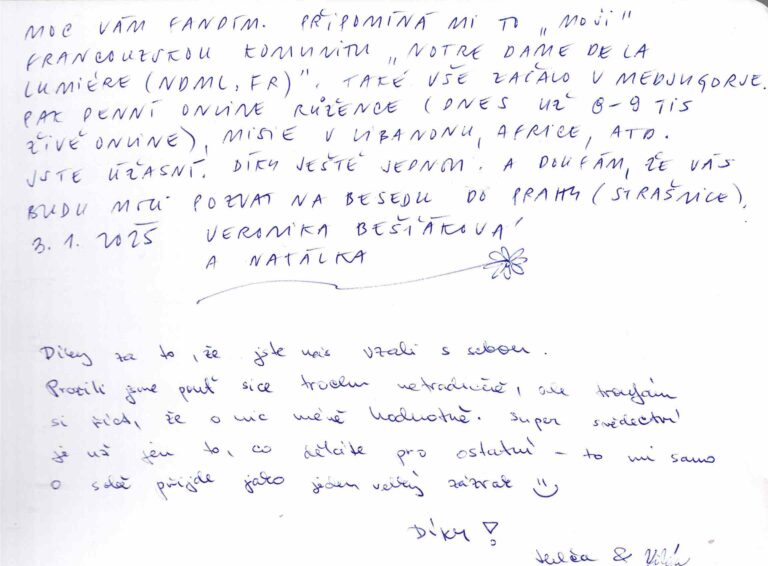 MOC VÁM FANDÍM. PŘIPOMÍNÁ MI TO „MOJI"
FRANCOUZSKOU KOMUNITU „NOTRE DAME DE LA
LUMIÉRE (NDML, FR)". TAKÉ VŠE ZAČALO V MEDJUGORJE.
PAK DENNÍ ONLINE RŮŽENCE (DNES UŽ 8-9 TIS
ŽIVĚ ONLINE), MISIE V LIBANONU, AFRICE, ATD.
JSTE ÚŽASNÍ. DÍKY JEŠTĚ JEDNOU. A DOUFÁM, ŽE VÁS
BUDU MOCI POZVAT NA BESEDU DO PRAHY (STRAŠNICE),
3. 1. 2025 VERONIKA BEŠŤÁKOVÁ
A NATÁLKA
Díky za to, že jste nás vzali s sebou.
Prožili jsme pouť sice trochu netradičně, ale troufám
si říct, že o nic méně hodnotně. Super svědectví
je už jen to, co děláte pro ostatní – to mi samo
o sobě přijde jako jeden velký zázrak
Díky!
&